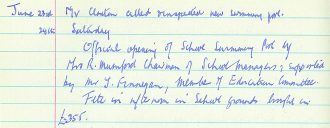 June 23rd Mr Clinton called & inspected new swimming pool.
24th Saturday
Official opening of School Swimming Pool by
Mrs R. Mumford Chairman of School Managers & supported
by Mr J. Finnegan, Member of Education Committee.
Fete in afternoon in School grounds brought in
£355.